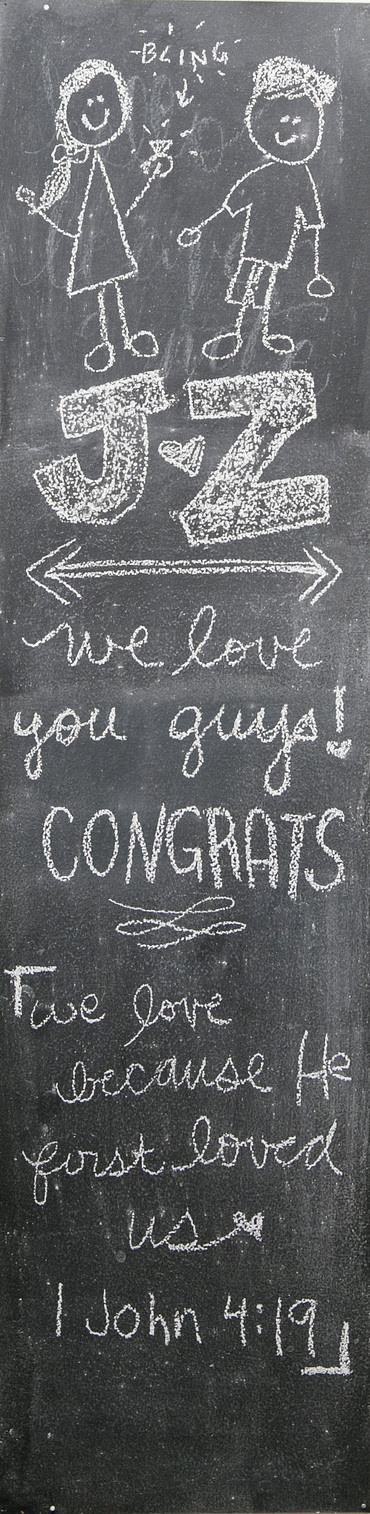 BLING
J♥Z
we love
you guys!
CONGRATS
we love
because He
first loved
us
1 John 4:19